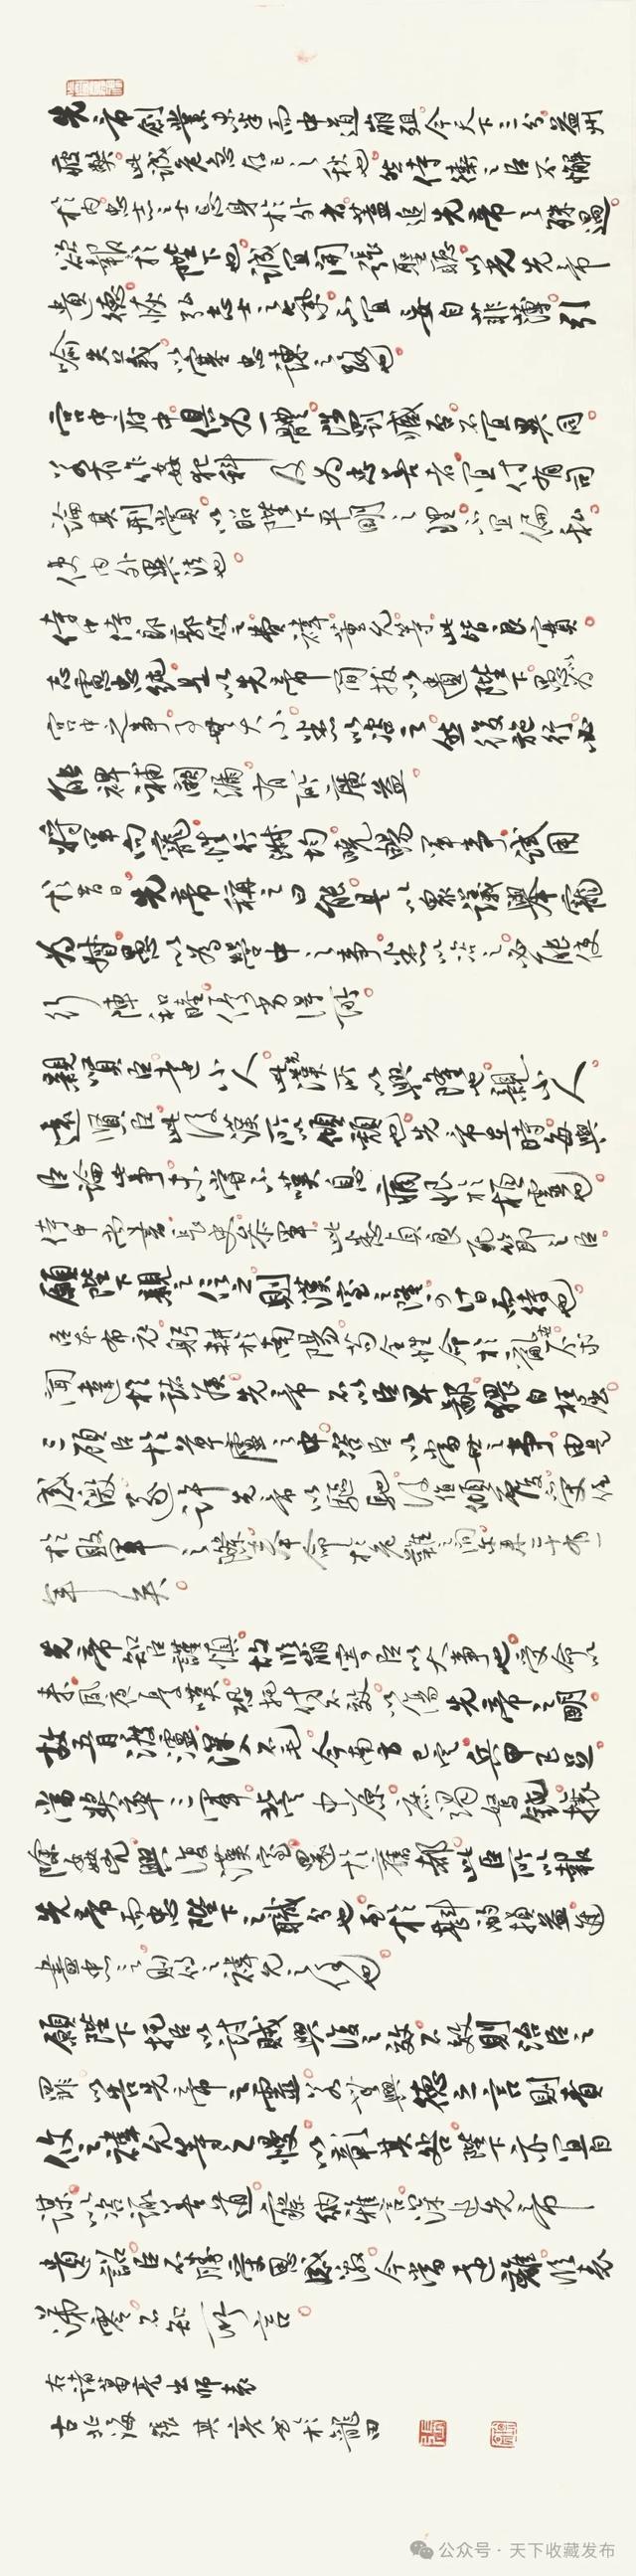 先帝創業未半而中道崩殂今天下三分益州
疲弊此誠危急存亡之秋也然侍衛之臣不懈
於内忠志之士忘身於外者蓋追先帝之殊遇
欲報於陛下也誠宜開張聖聽以光先帝
遺德恢弘志士之氣不宜妄自菲薄引
喻失義以塞忠諫之路也
宮中府中俱為一體陟罰臧否不宜異同
若有作姦犯科及為忠善者宜付有司
論其刑賞以昭陛下平明之理不宜偏私
使内外異法也
侍中侍郎郭攸之費禕董允等此皆良實
志慮忠純是以先帝簡拔以遺陛下愚以為
宮中之事事無大小悉以咨之然後施行必
能裨補闕漏有所廣益
將軍向寵性行淑均曉暢軍事試用
於昔日先帝稱之曰能是以眾議舉寵
為督愚以為營中之事悉以咨之必能使
行陣和睦優劣得所
親賢臣遠小人此先漢所以興隆也親小人
遠賢臣此後漢所以傾頹也先帝在時每與
臣論此事未嘗不嘆息痛恨於桓靈也
侍中尚書長史參軍此悉貞良死節之臣
願陛下親之信之則漢室之隆可計日而待也
臣本布衣躬耕於南陽苟全性命於亂世不求
聞達於諸侯先帝不以臣卑鄙猥自枉屈
三顧臣於草廬之中咨臣以當世之事由是
感激遂許先帝以驅馳後值傾覆受任
於敗軍之際奉命於危難之間爾來二十有一
年矣
先帝知臣謹慎故臨崩寄臣以大事也受命以
來夙夜憂嘆恐托付不效以傷先帝之明
故五月渡瀘深入不毛今南方已定兵甲已足
當獎率三軍北定中原庶竭駑鈍攘
除姦兇興復漢室還於舊都此臣所以報
先帝而忠陛下之職分也至於斟酌損益進
盡忠言則攸之禕允之任也
願陛下托臣以討賊興復之效不效則治臣之
罪以告先帝之靈若無興德之言則責
攸之禕允等之慢以彰其咎陛下亦宜自
謀以咨諏善道察納雅言深追先帝
遺詔臣不勝受恩感激今當遠離臨表
涕零不知所言
右諸葛亮出師表
古北海張其亮書於龍田
公众号·天下收藏发布